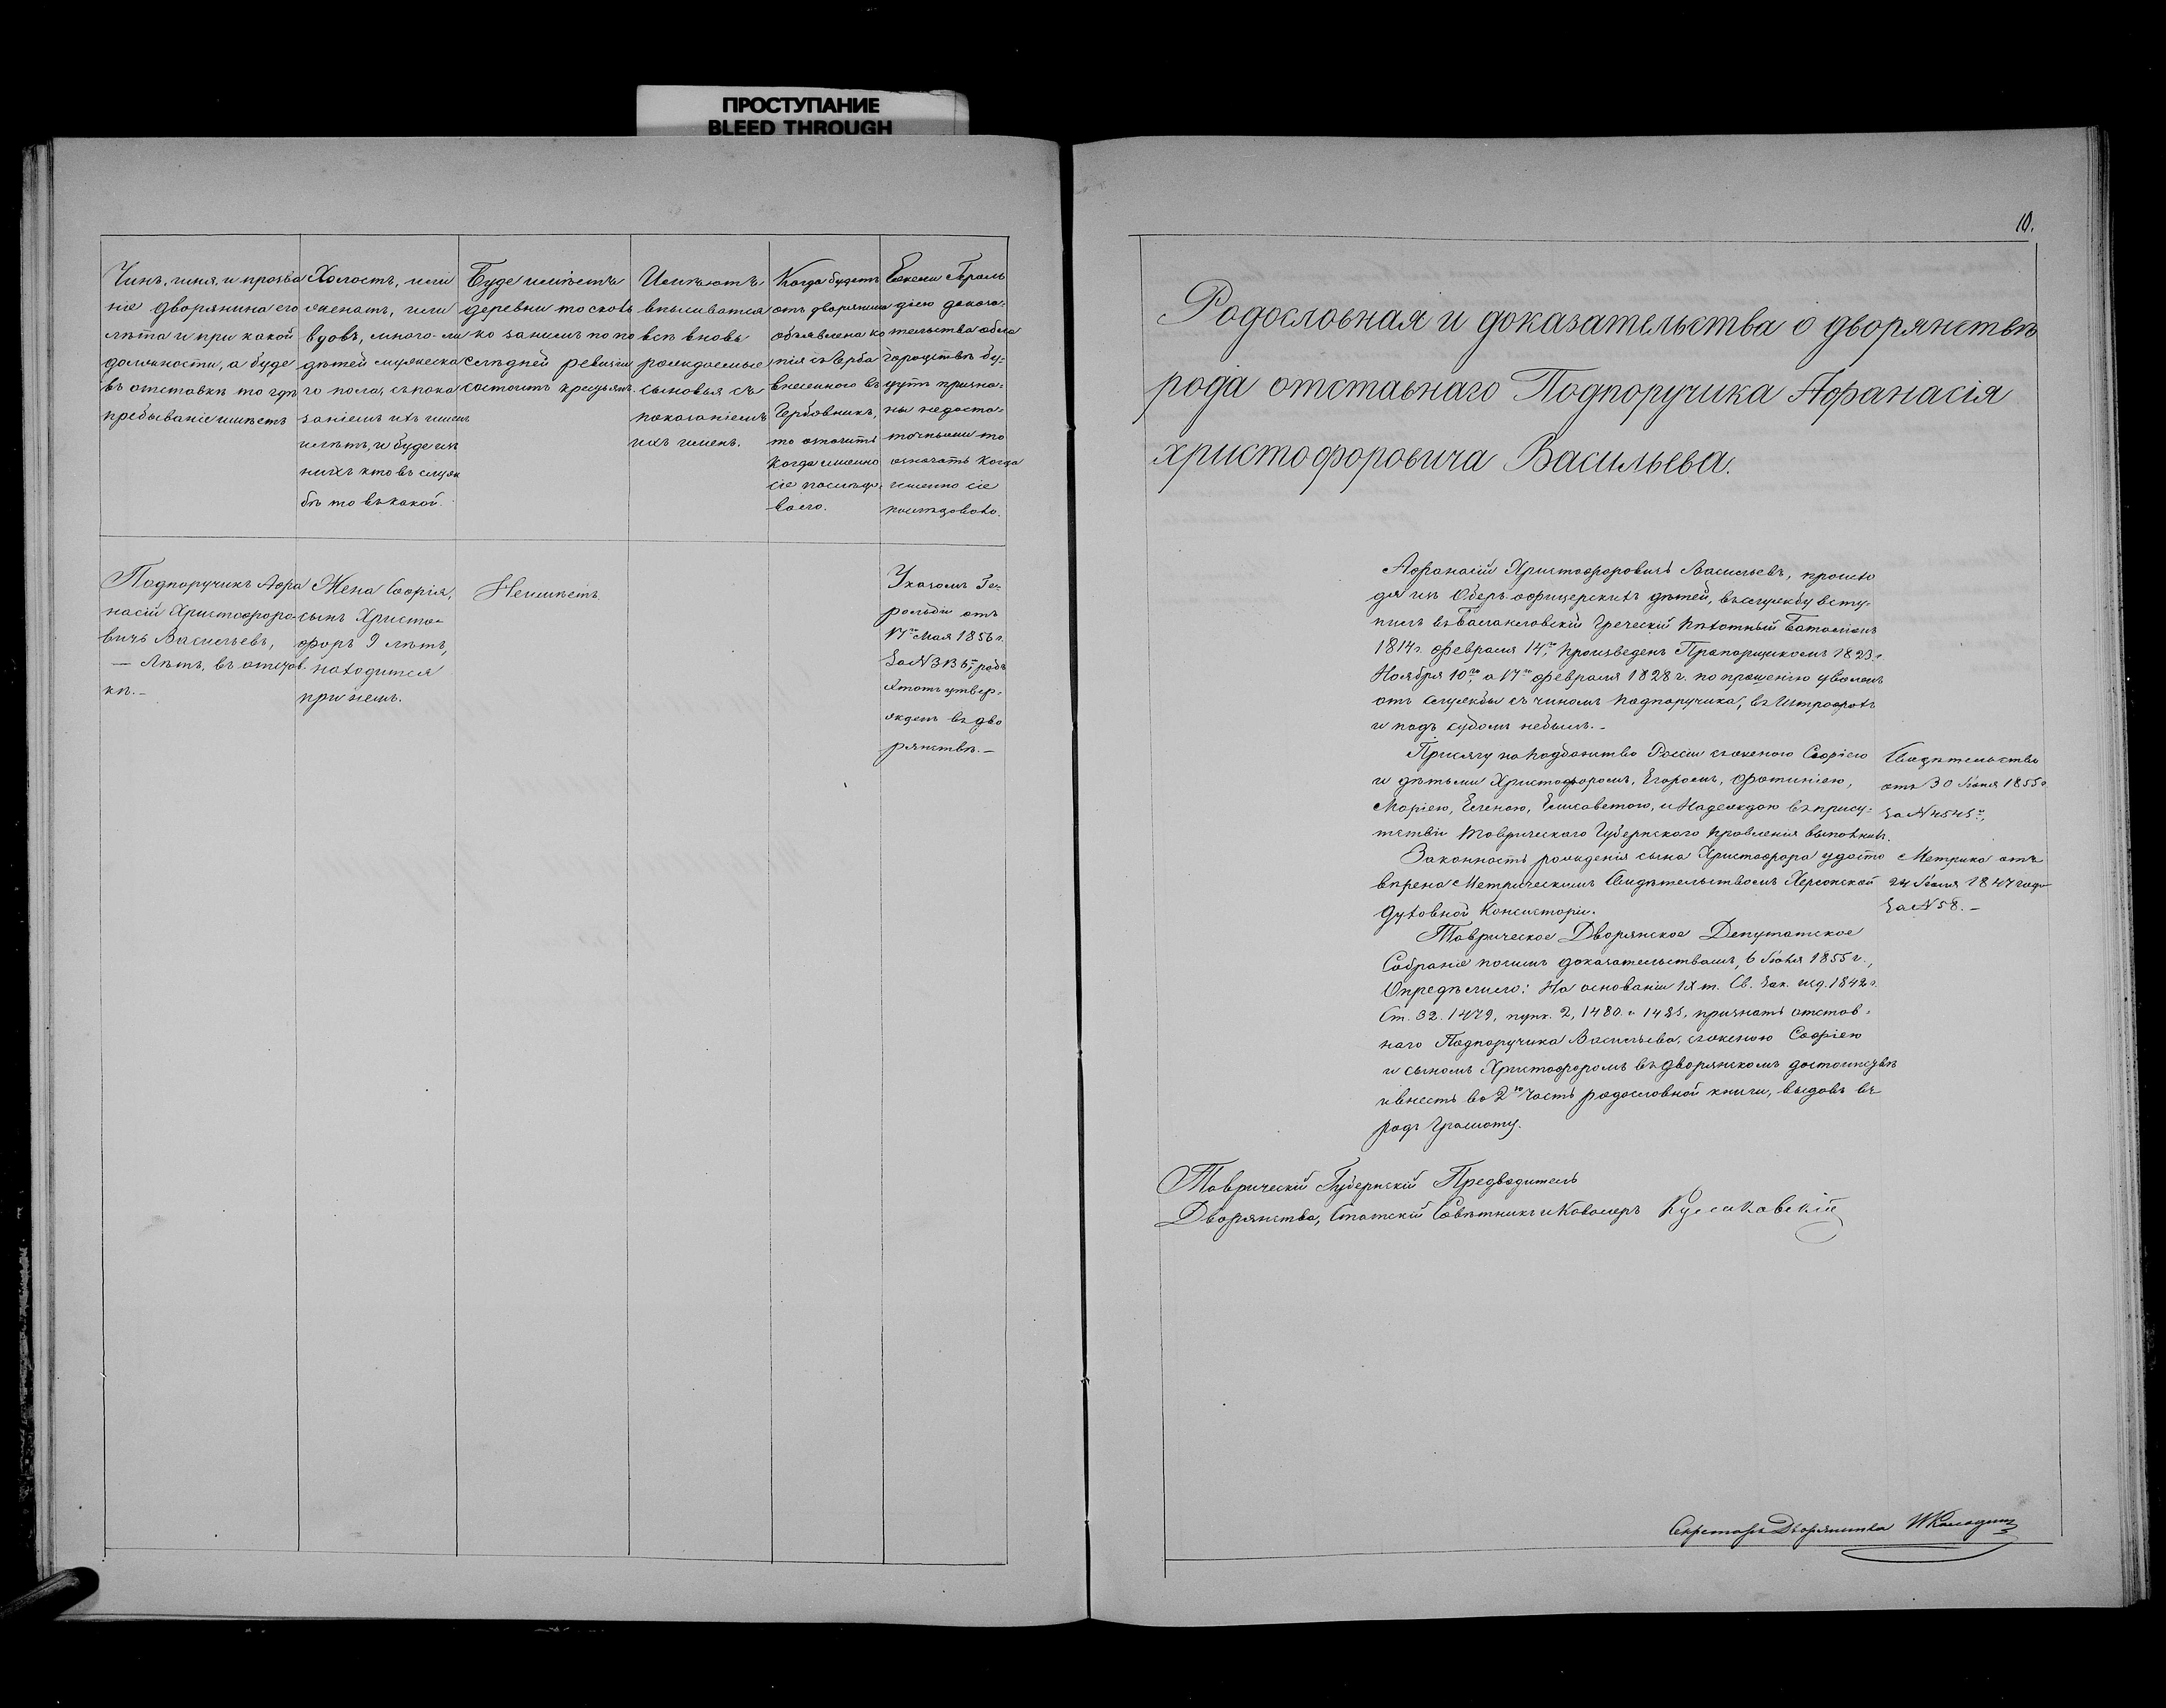 ПРОСТУПАНИЕ
BLEED THROUGH
Чинъ, имя, и прозва
ніе дворянина его
лѣта и при какой
должности, а буде
въ отставкѣ то гдѣ
пребываніе имѣетъ
Холостъ, или
женатъ, или
вдовъ, много-ли
дѣтей мужеска
го пола, съ пока
заніемъ ихъ именъ
и лѣтъ, и буде изъ
нихъ кто въ служ
бѣ то въ какой.
Буде имѣетъ
деревни то сколь
ко за нимъ по по
слѣдней ревизіи
состоитъ крестьянъ
Имѣютъ
вписыватся
всѣ вновь
рождаемые
сыновья съ
показаніемъ
ихъ именъ.
Когда будетъ
отъ дворянина
объявлена ко
пія съ Герба
внесеннаго въ
Гербовникъ,
то означить
когда именно
сіе послѣдо
вало.
Ежели Героль
діею доказа-
тельства о бла
городствѣ бу-
дутъ призна-
ны недоста-
точными то
означать когда
именно сіе
послѣдовало.
Подпоручикъ Афа
насій Христофоро-
вичъ Васильевъ,
— лѣтъ, въ отстав
кѣ.—
Жена Софія,
сынъ Христо-
форъ 9 лѣтъ,
находится
при немъ.
Неимѣетъ
Указомъ Ге-
рольдіи отъ
17го Мая 1856 г.
за № 3136, родъ
этотъ утвер-
жденъ въ дво
рянствѣ.—
10.
Родословная и доказательства о дворянствѣ
рода отставнаго Подпоручика Афанасія
Христофоровича Васильева.
Афанасій Христофоровичъ Васильевъ, происхо
дя изъ Оберъ офицерскихъ дѣтей, въ службу всту-
пилъ въ Балаклавскій Греческій Пѣхотный Баталіонъ
1814 г. февраля 14го, произведенъ Прапорщикомъ 1823 г.
Ноября 10го, а 17го февраля 1828 г. по прошенію уволенъ
отъ службы съ чиномъ подпоручика, въ штрафахъ
и подъ судомъ небылъ.—
Присягу на подданство Россіи съ женою Софіею
и дѣтьми Христофоромъ, Егоромъ, Фотиніею,
Маріею, Еленою, Елисаветою, и Надеждою въ прису-
тствіи Таврическаго Губернскаго Правленія выполнилъ.
Свидѣтельство
отъ 30 Іюня 1855 г.
за № 4545,
Законность рожденія сына Христофора удосто
вѣрена Метрическимъ Свидѣтельствомъ Херсонской
Духовной Консисторіи.
Метрика отъ
24 Іюля 1847 года
за № 58.—
Таврическое Дворянское Депутатское
Собраніе по симъ доказательствамъ, 6 Іюля 1855 г.,
Опредѣлило: На основаніи IX т. Св. Зак. изд. 1842 г.
Ст. 32. 1479, пунк. 2, 1480. и 1485, признать отстав-
наго Подпоручика Васильева, съ женою Софіею
и сыномъ Христофоромъ въ дворянскомъ достоинствѣ
и внесть во 2ю часть родословной книги, выдавъ въ
родъ Грамоту.
Таврическій Губернскій Предводитель
Дворянства, Статскій Совѣтникъ и Кавалеръ
Секретарь Дворянства